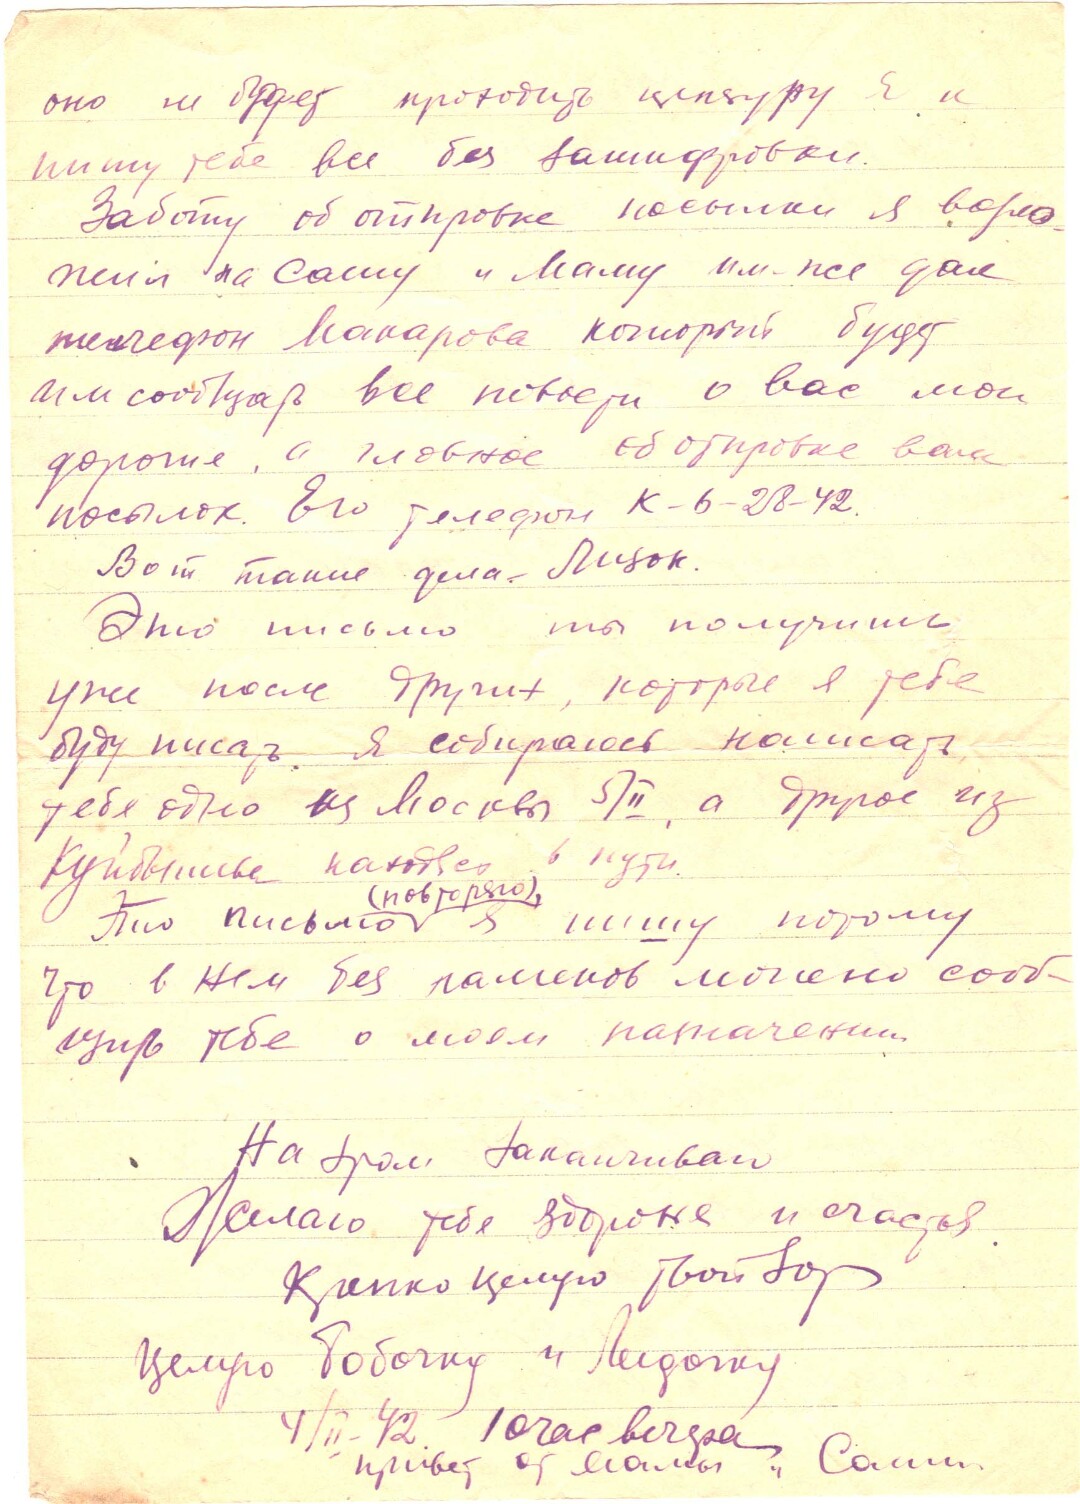 оно не будет проходить цензуру я и
пишу тебе все без зашифровки.
Заботу об отправке посылки я возло-
жил на Сашу и Маму им-же дал
телефон Макарова который будет
им сообщать все новости о вас мои
дорогие, а главное об отправке вам
посылок. Его телефон К-6-28-42.
Вот такие дела- Лизок.
Это письмо ты получишь
уже после других, которые я тебе
буду писать. Я собираюсь написать
тебе одно из Москвы 5/II, а другое из
Куйбышева находясь в пути.
(повторяю),
Это письмо я пишу потому
что в нем без намеков можно сооб-
щить тебе о моем назначении.
На этом заканчиваю
Желаю тебе здоровья и счастья.
Крепко целую твой
Целую Бобочку и Лидочку
4/II-42. 10 час вечера
привет от мамы и Саши.